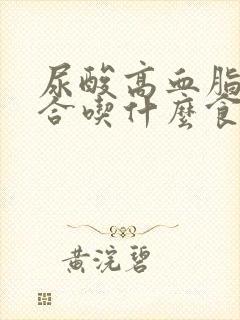 尿酸高血脂
合喫什麼食
黄浣碧